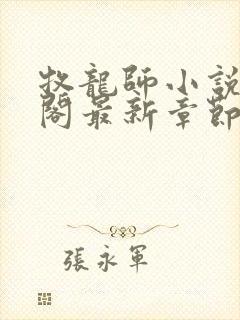 牧龍師小說
閣最新章節
張永軍